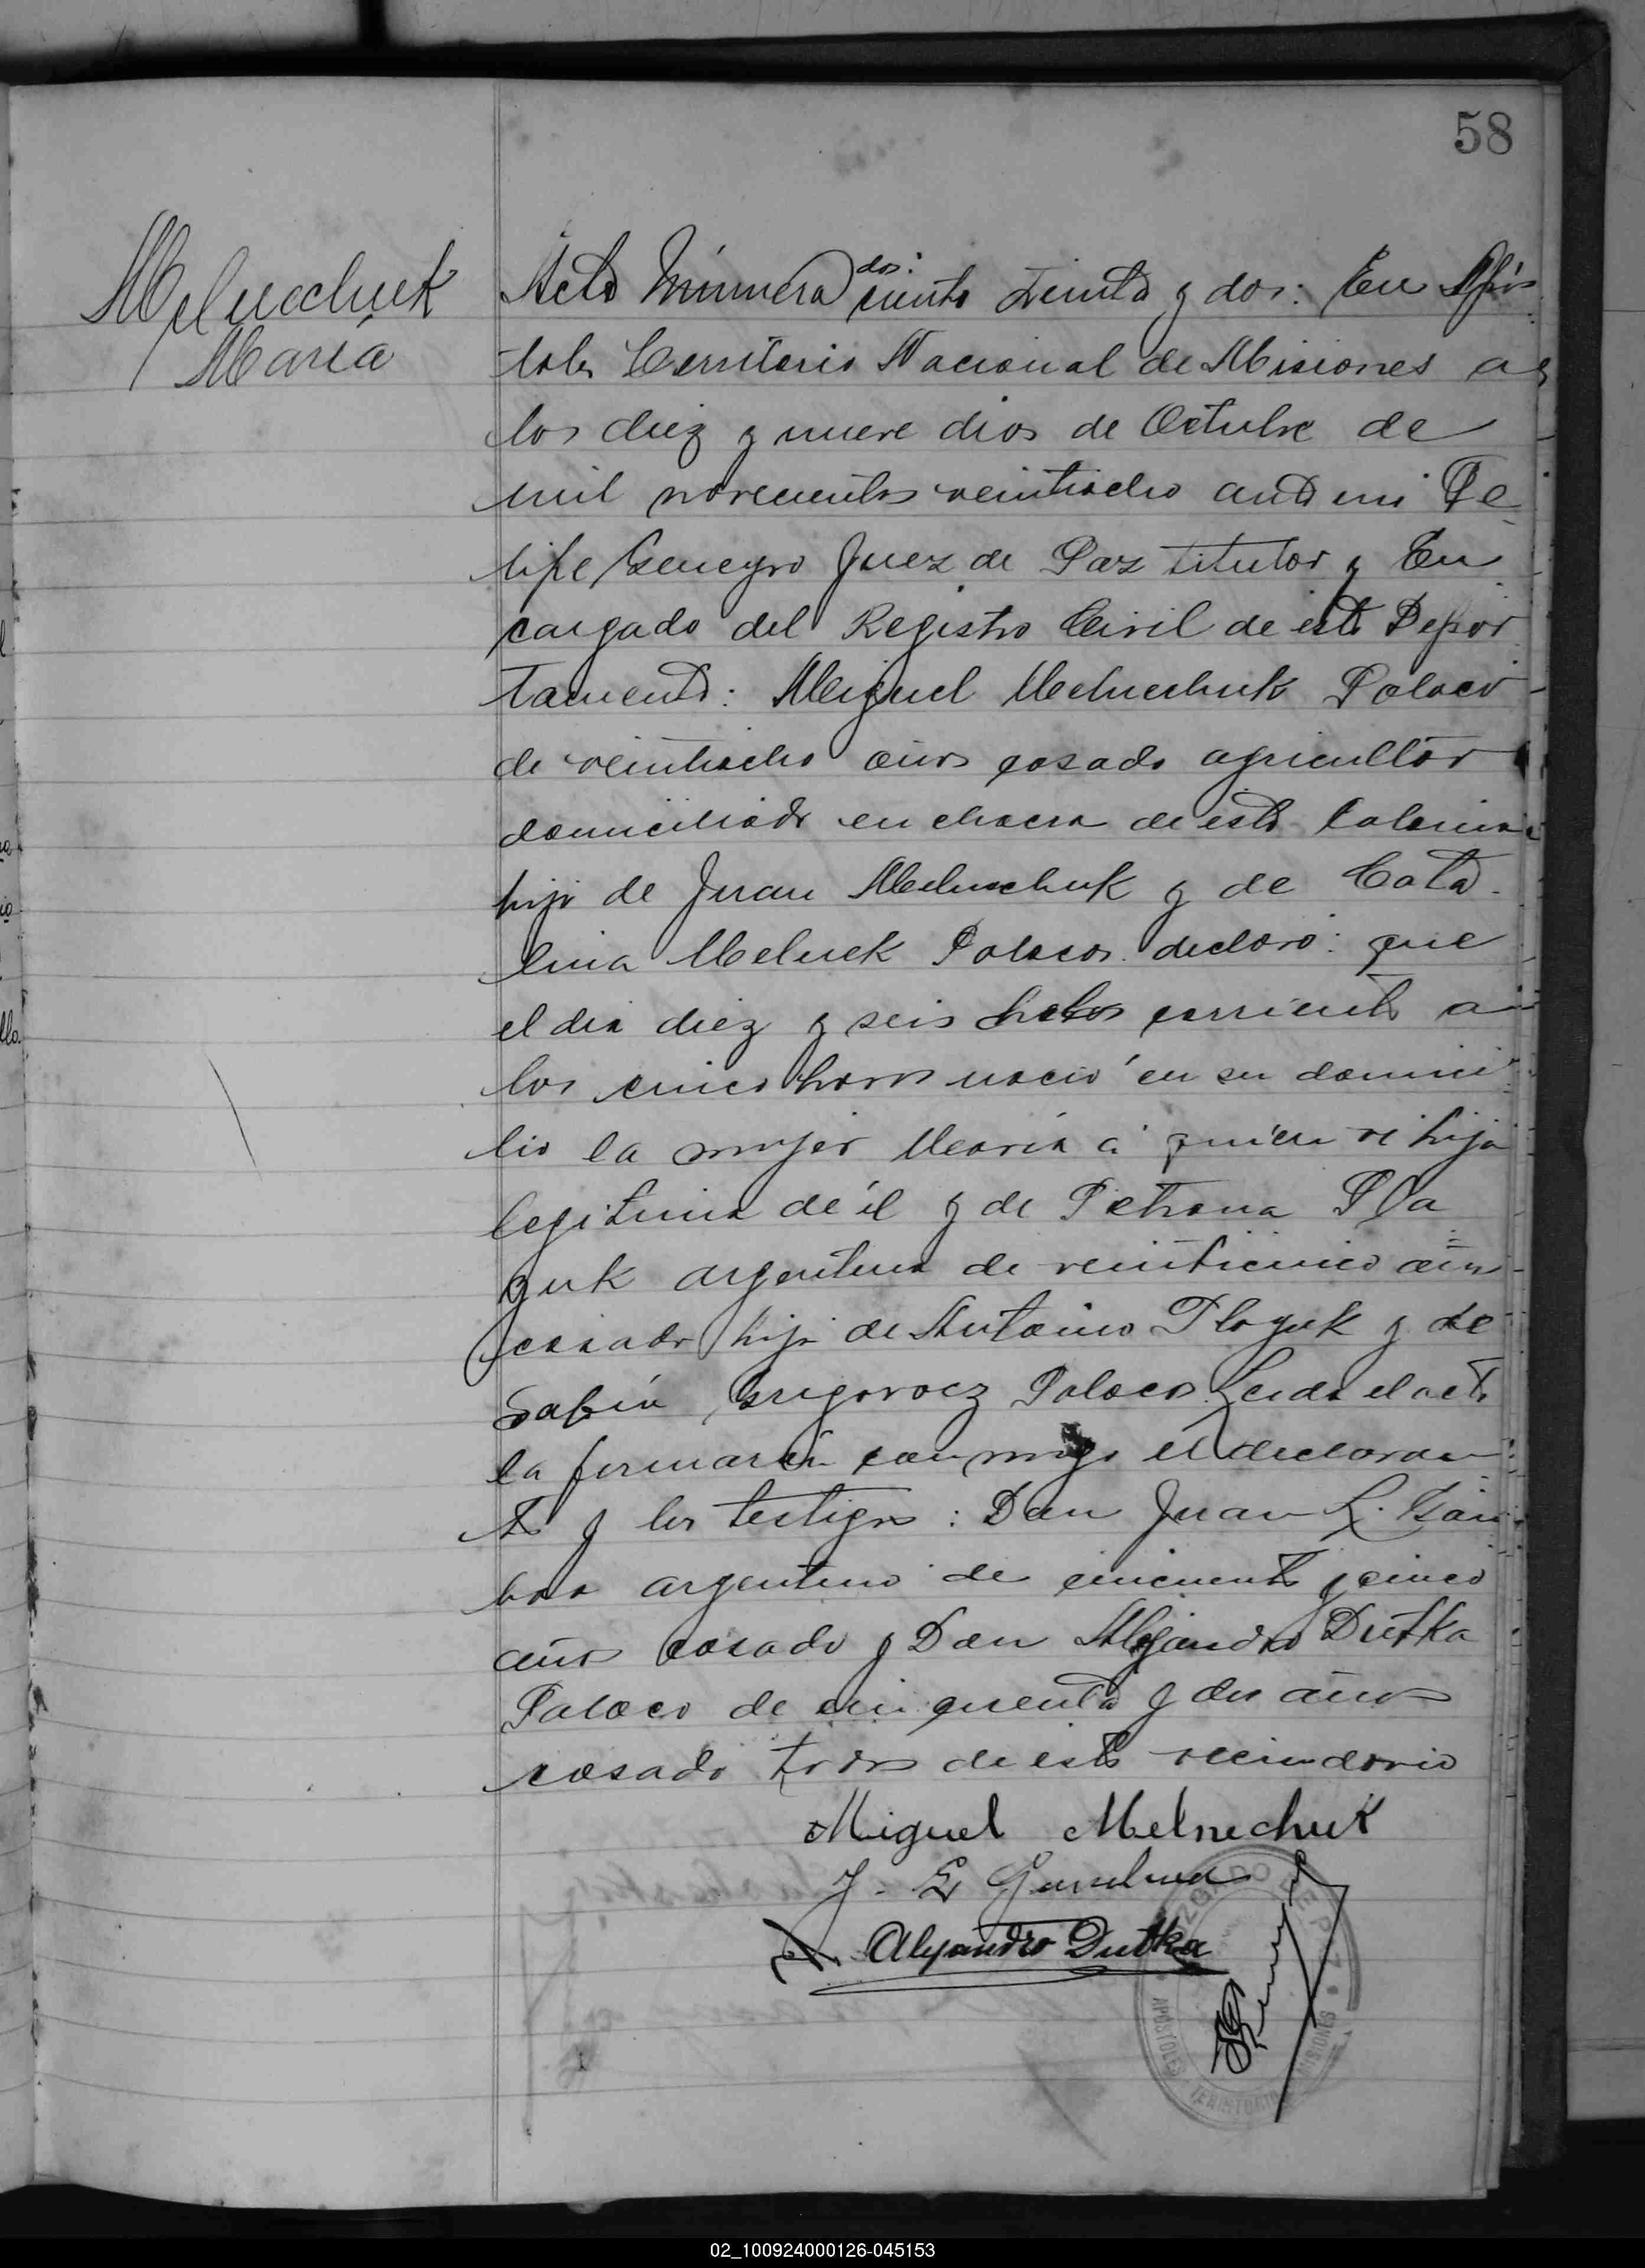 58
Melnechuk
María
Acta Número dos ciento treinta y dos: En Após
toles Territorio Nacional de Misiones a
los diez y nueve dias de Octubre de
mil novecientos veintiocho ante mi Fe
lipe Juez de Paz titular y En
cargado del Registro Civil de este Depar
tamento: Miguel Melnechuk Polaco
de veintiocho años casado agricultor
domiciliado en chacra de esta Colonia
hijo de Juan Melnechuk y de Cata
lina Melnek Polacos declaró: que
el dia diez y seis corriente a
las cinco horas nació en su domici
lio la mujer María a quien vi hija
legitima de él y de Petrona Pla
guk argentina de veinticinco años
casada hija de Antonio Ploguk y de
Sabina Polacos Leida el acta
la firmarán conmigo el declaran
te y los testigos: Don Juan
argentino de cincuenta y cinco
años casado y Don Alejandro Dutka
Polaco de cinquenta y dos años
casado todos de este vecindario
Miguel Melnechuk
J. E.
Alejandro Dutka
JUZGADO DE PAZ
APOSTOLES TERRITORIO MISIONES
02_100924000126-045153